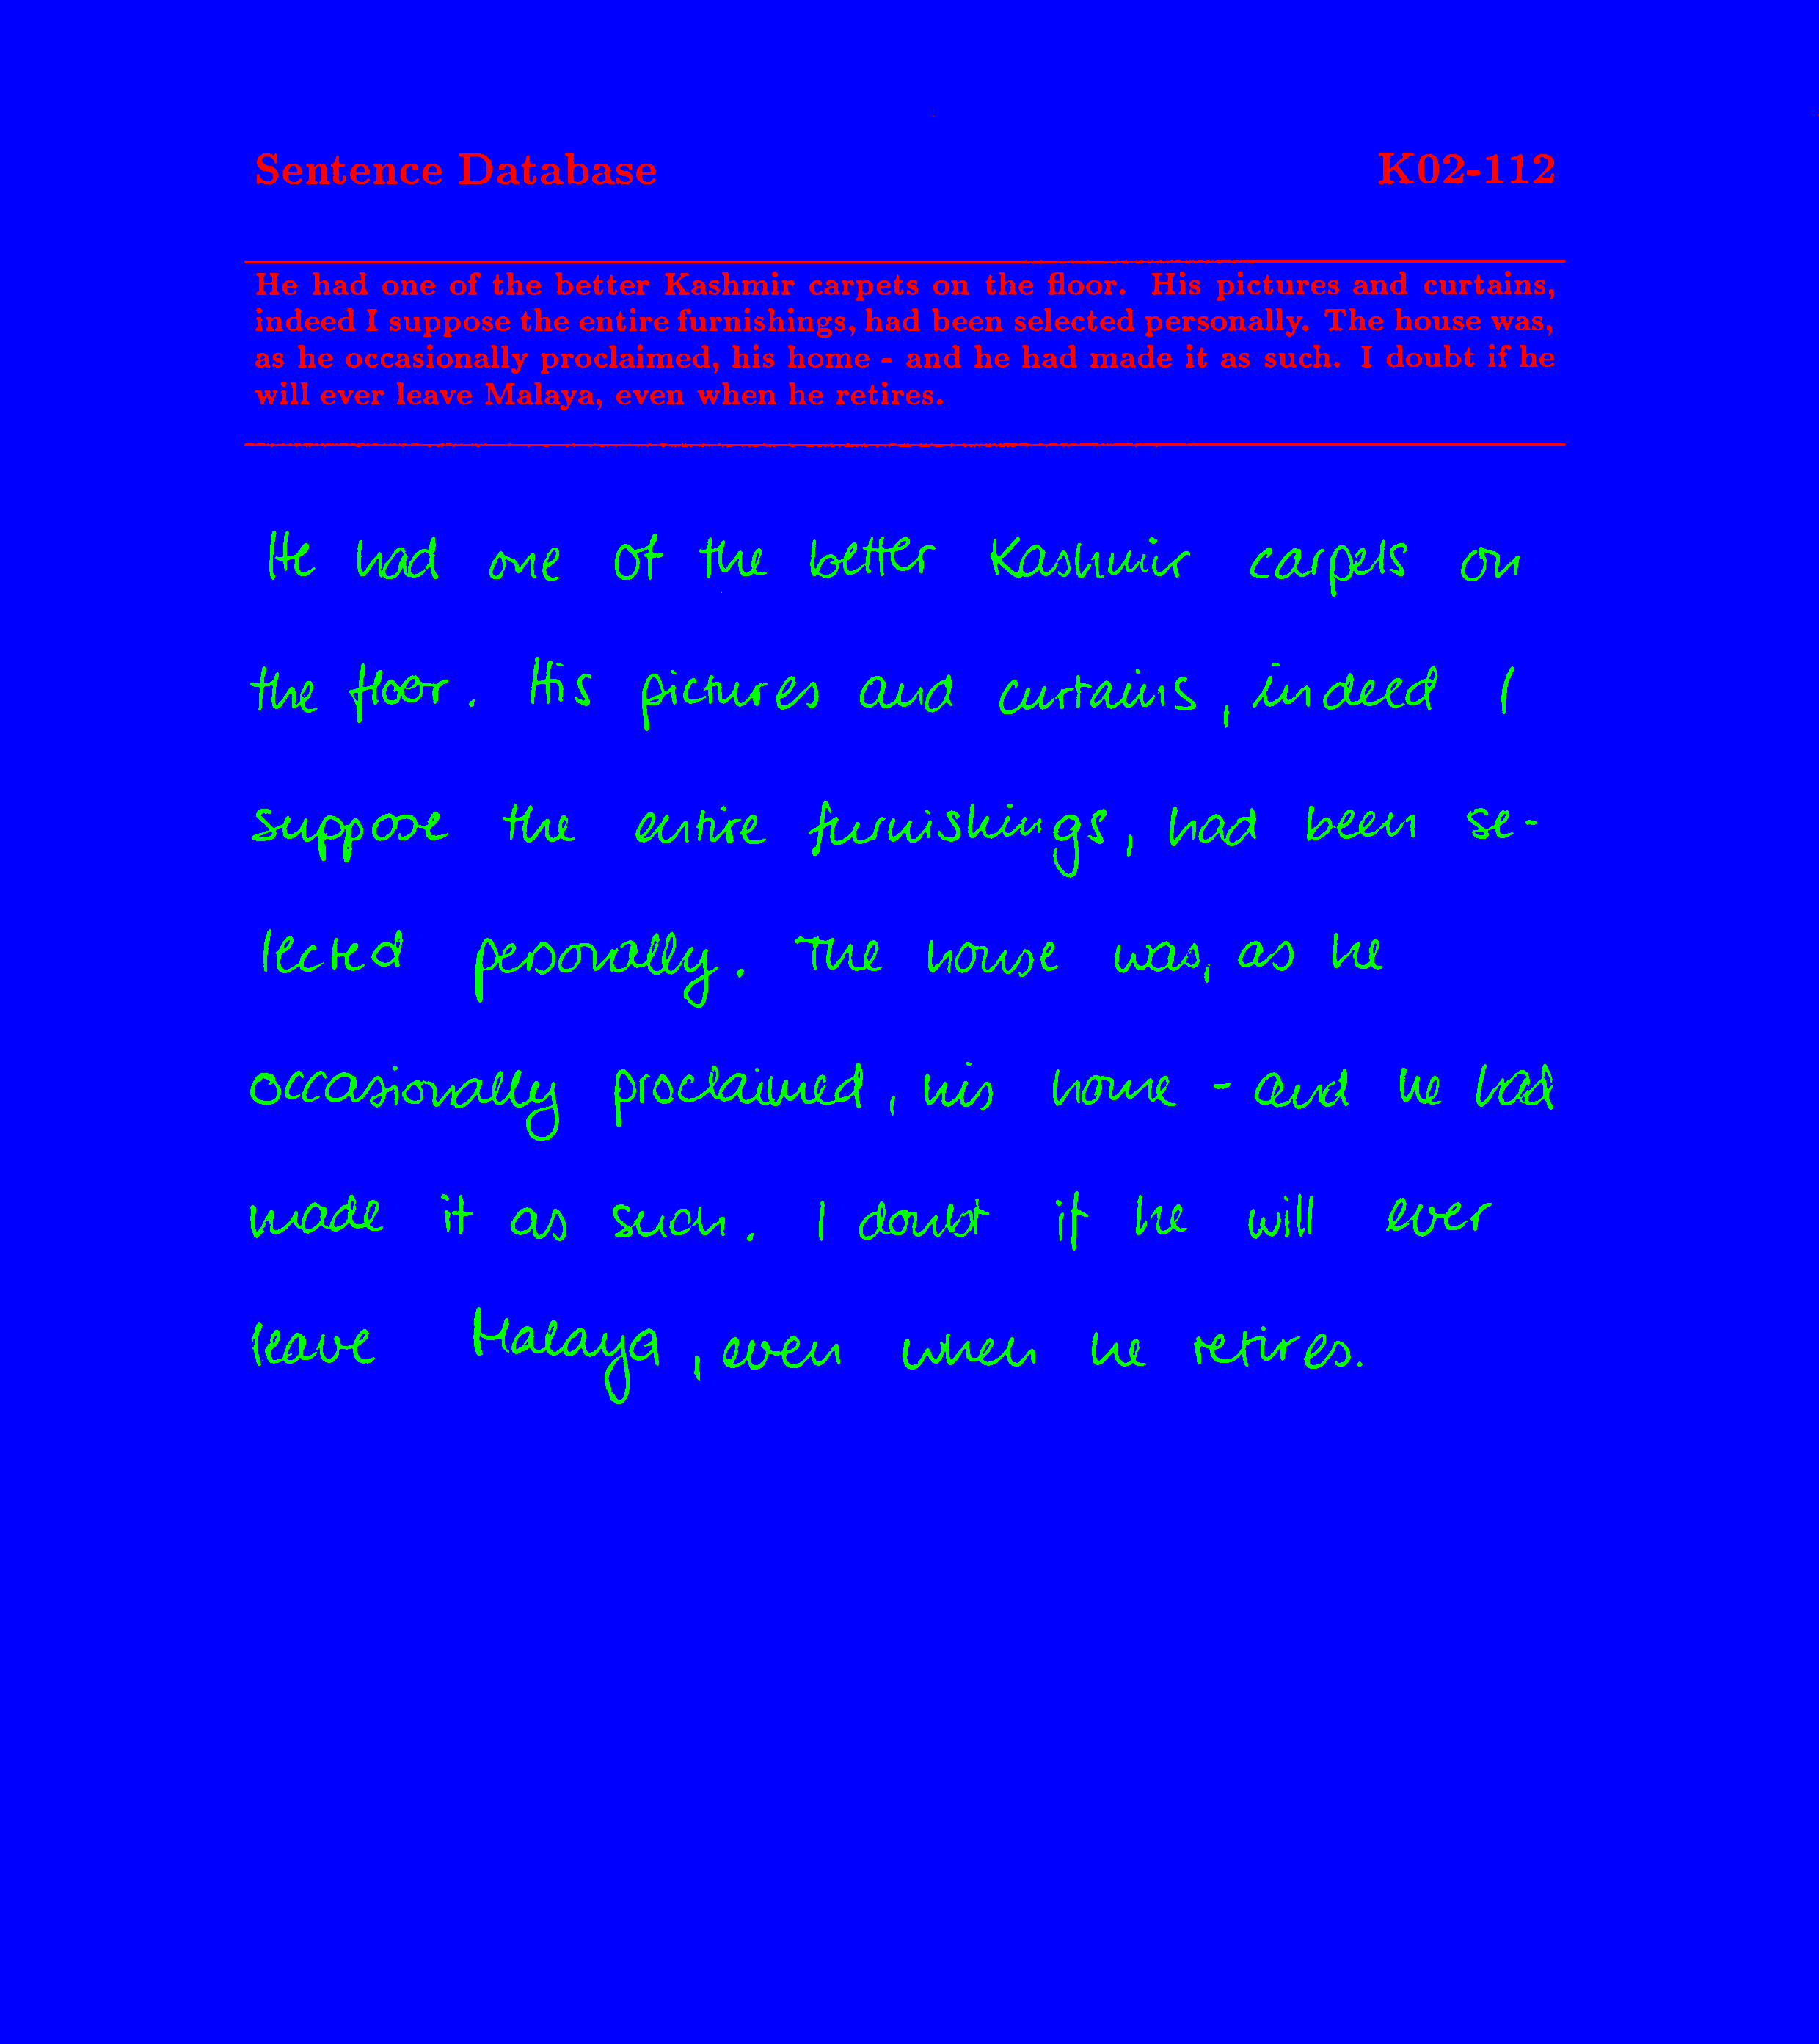 Sentence Database K02-112
He had one of the better Kashmir carpets on the floor. His pictures and curtains,
indeed I suppose the entire furnishings, had been selected personally. The house was,
as he occasionally proclaimed, his home - and he had made it as such. I doubt if he
will ever leave Malaya, even when he retires.
He had one of the better Kashmir carpets on
the floor. His pictures and curtains, indeed I
suppose the entire furnishings, had been se-
lected personally. The house was, as he
occasionally proclaimed, his home - and he had
made it as such. I doubt if he will ever
leave Malaya, even when he retires.